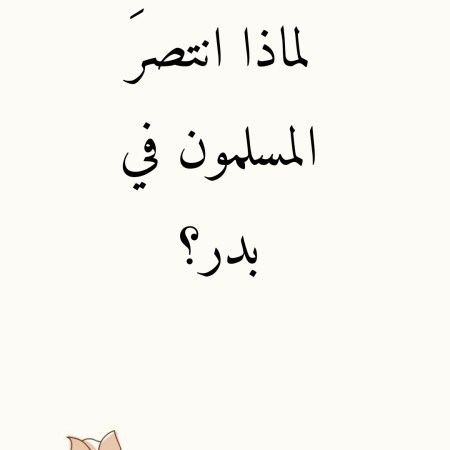 لماذا انتصرَ
المسلمون في
بدر؟